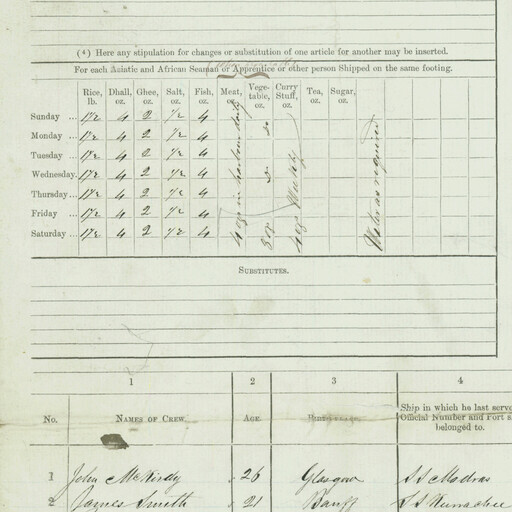 (*) Here any stipulation for changes or substitution of one article for another may be inserted.
For each Asiatic and African Seaman or Apprentice or other person Shipped on the same footing.
Rice, lb. Dhall, oz. Ghee, oz. Salt, oz. Fish, oz. Meat, oz. Vege-table, oz. Curry Stuff, oz. Tea, oz. Sugar, oz.
Sunday ... 1½ 4 2 ½ 4
Monday ... 1½ 4 2 ½ 4
Tuesday ... 1½ 4 2 ½ 4
Wednesday. 1½ 4 2 ½ 4
Thursday... 1½ 4 2 ½ 4
Friday ... 1½ 4 2 ½ 4
Saturday ... 1½ 4 2 ½ 4
4 ozs in harbour daily
8 ozs
4 ozs Weekly
Water as required
SUBSTITUTES.
1 2 3 4
No. NAMES OF CREW. AGE. Ship in which he last serve
Official Number and Port
belonged to.
1 John McKirdy 26 Glasgow SS Madras
2 James Smith 21 Banff SS Kurrachee